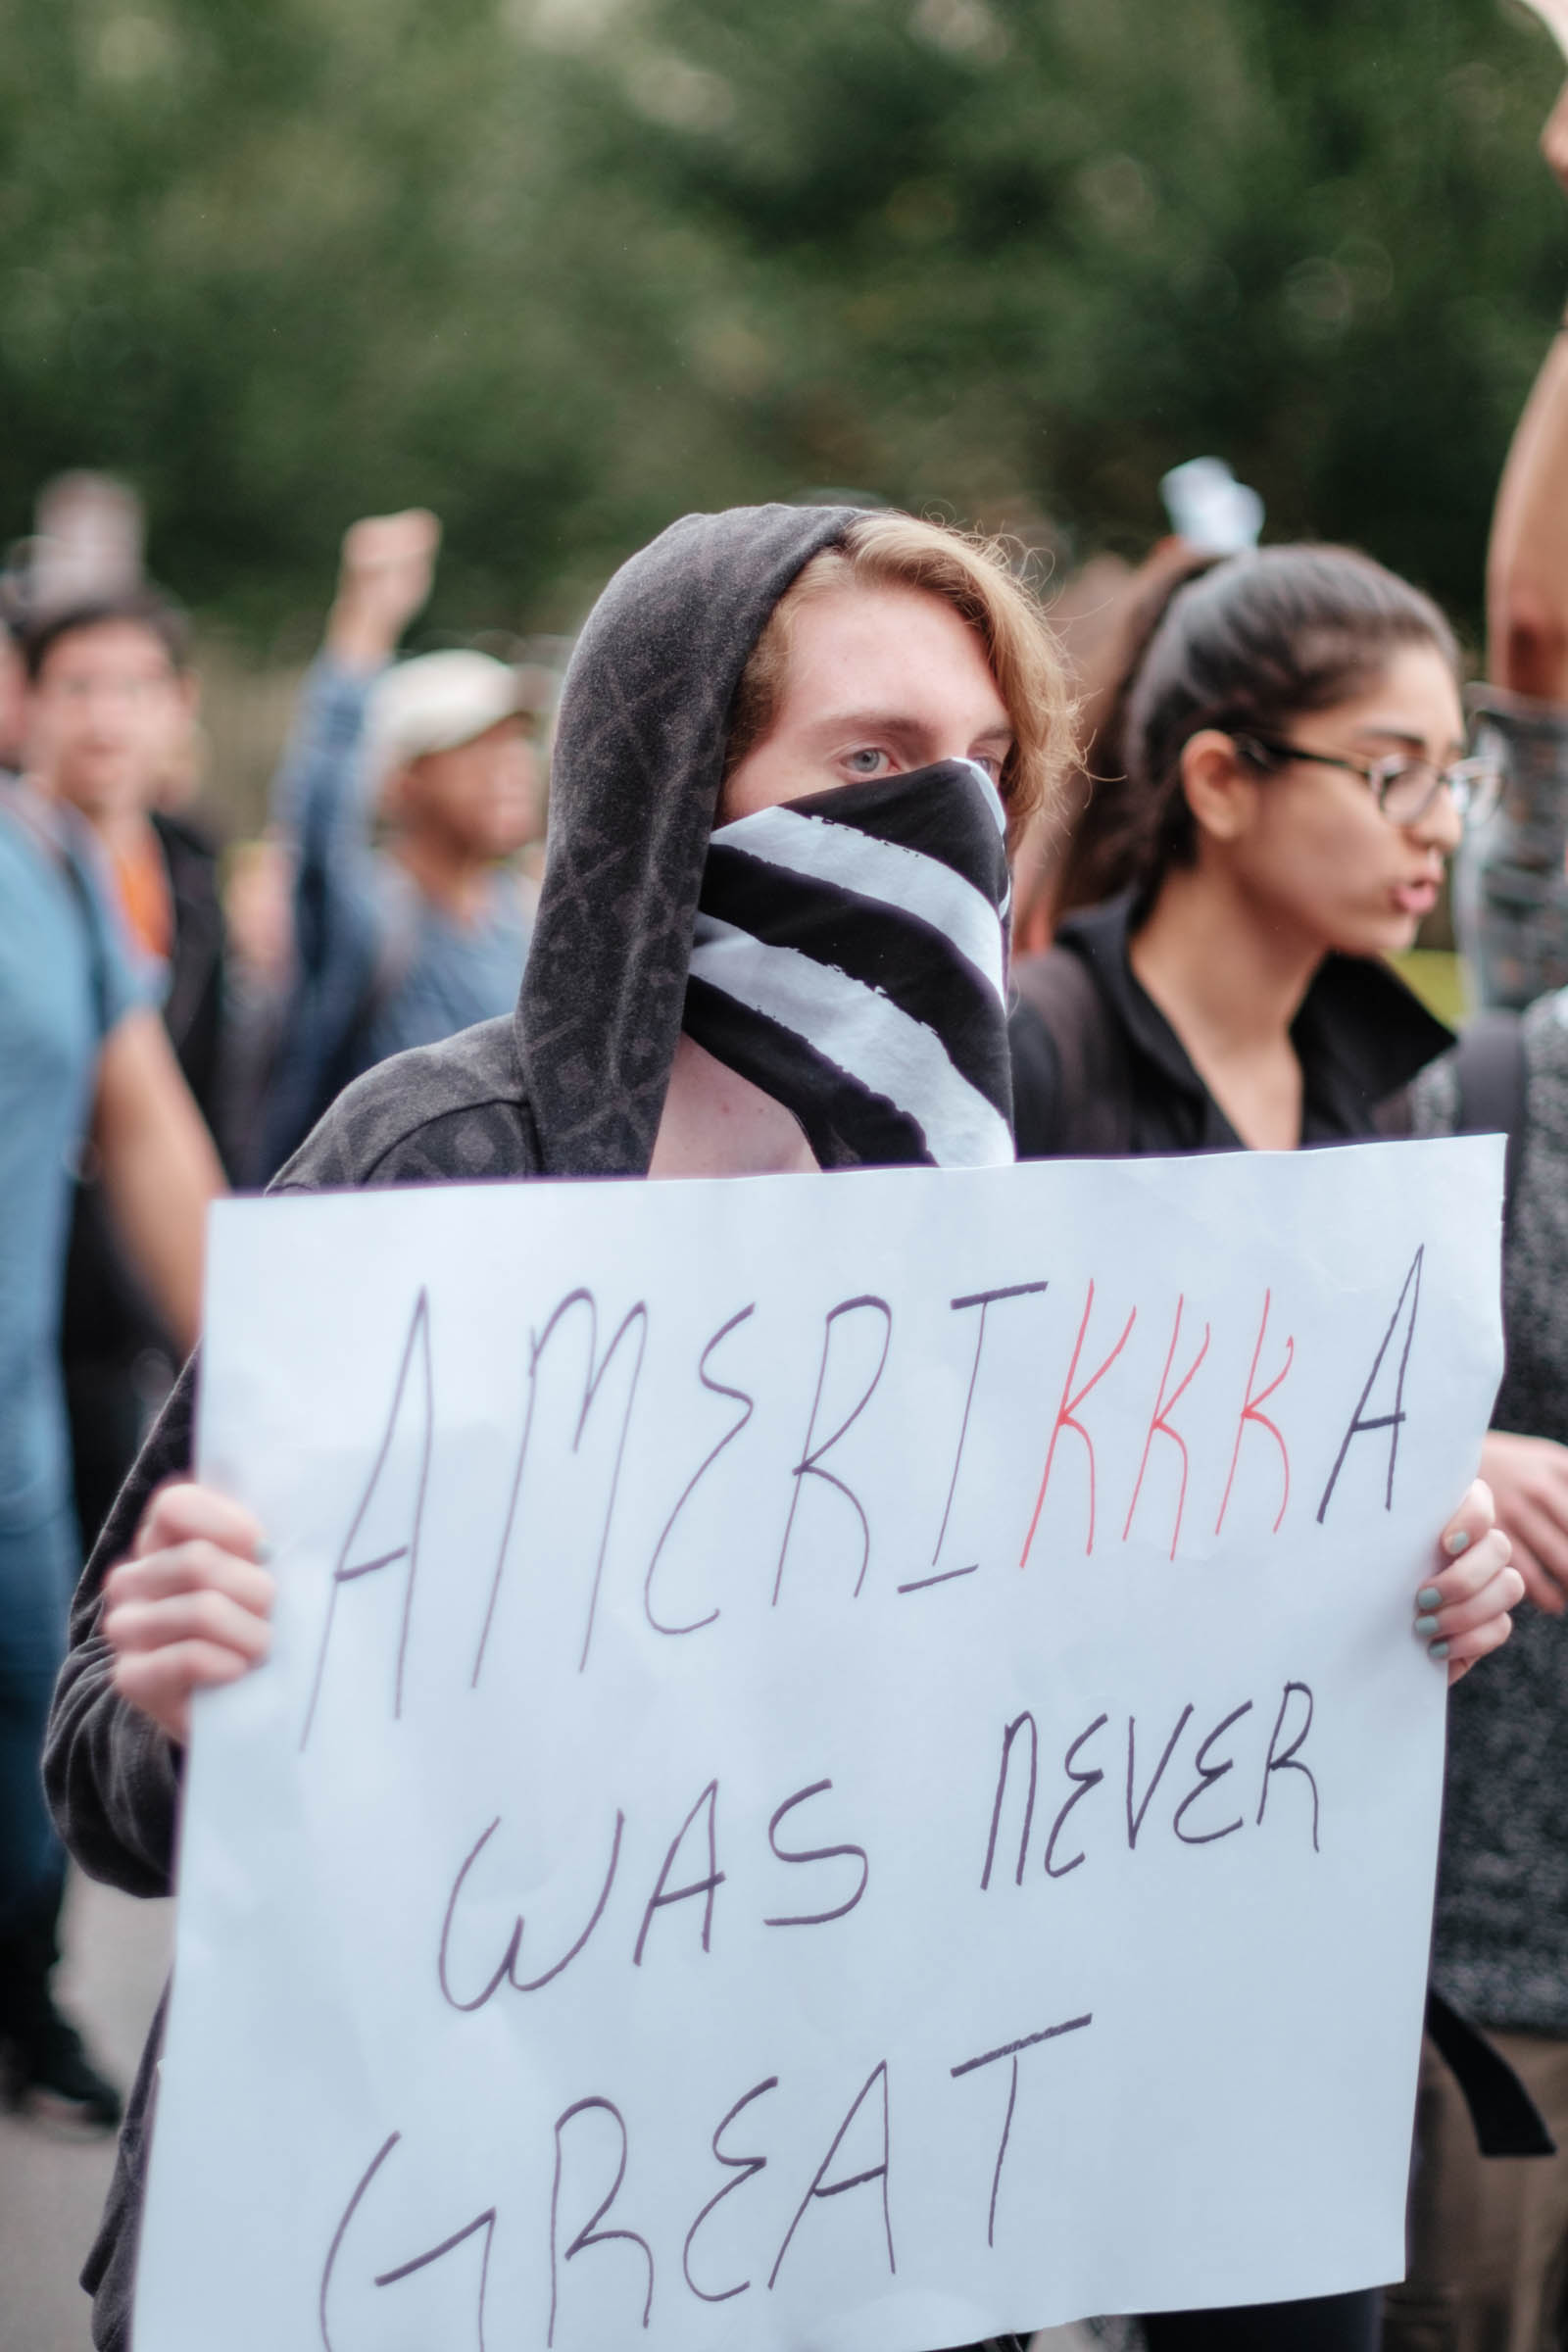 AMERIKKKA
WAS NEVER
GREAT